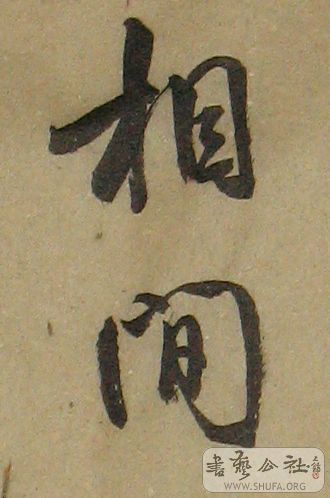 相間
書藝公社
WWW.SHUFA.ORG